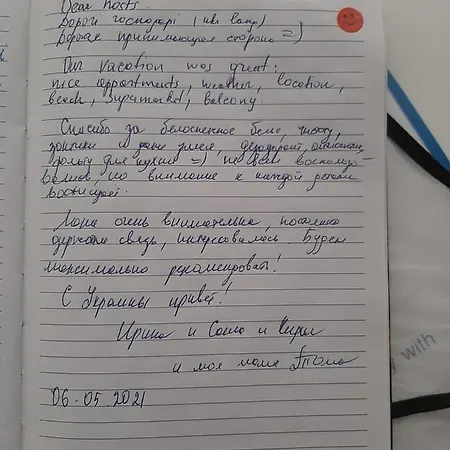 Dear hosts.
Дорогі господарі (ukr lang)
Дорогая принимающая сторона =)
Our vacation was great:
nice appartments, weather, location,
beach, supermarket, balcony.
Спасибо за белоснежное белье, чистоту,
и даже
для кухни =) не всем воспользо-
вались, но внимание к каждой детали
восхищает.
очень внимательна, постоянно
держала связь, интересовалась. Будем
максимально рекомендовать!
С Украины привет!
Ирина и Саша и
и моя мама
06.05.2021
with